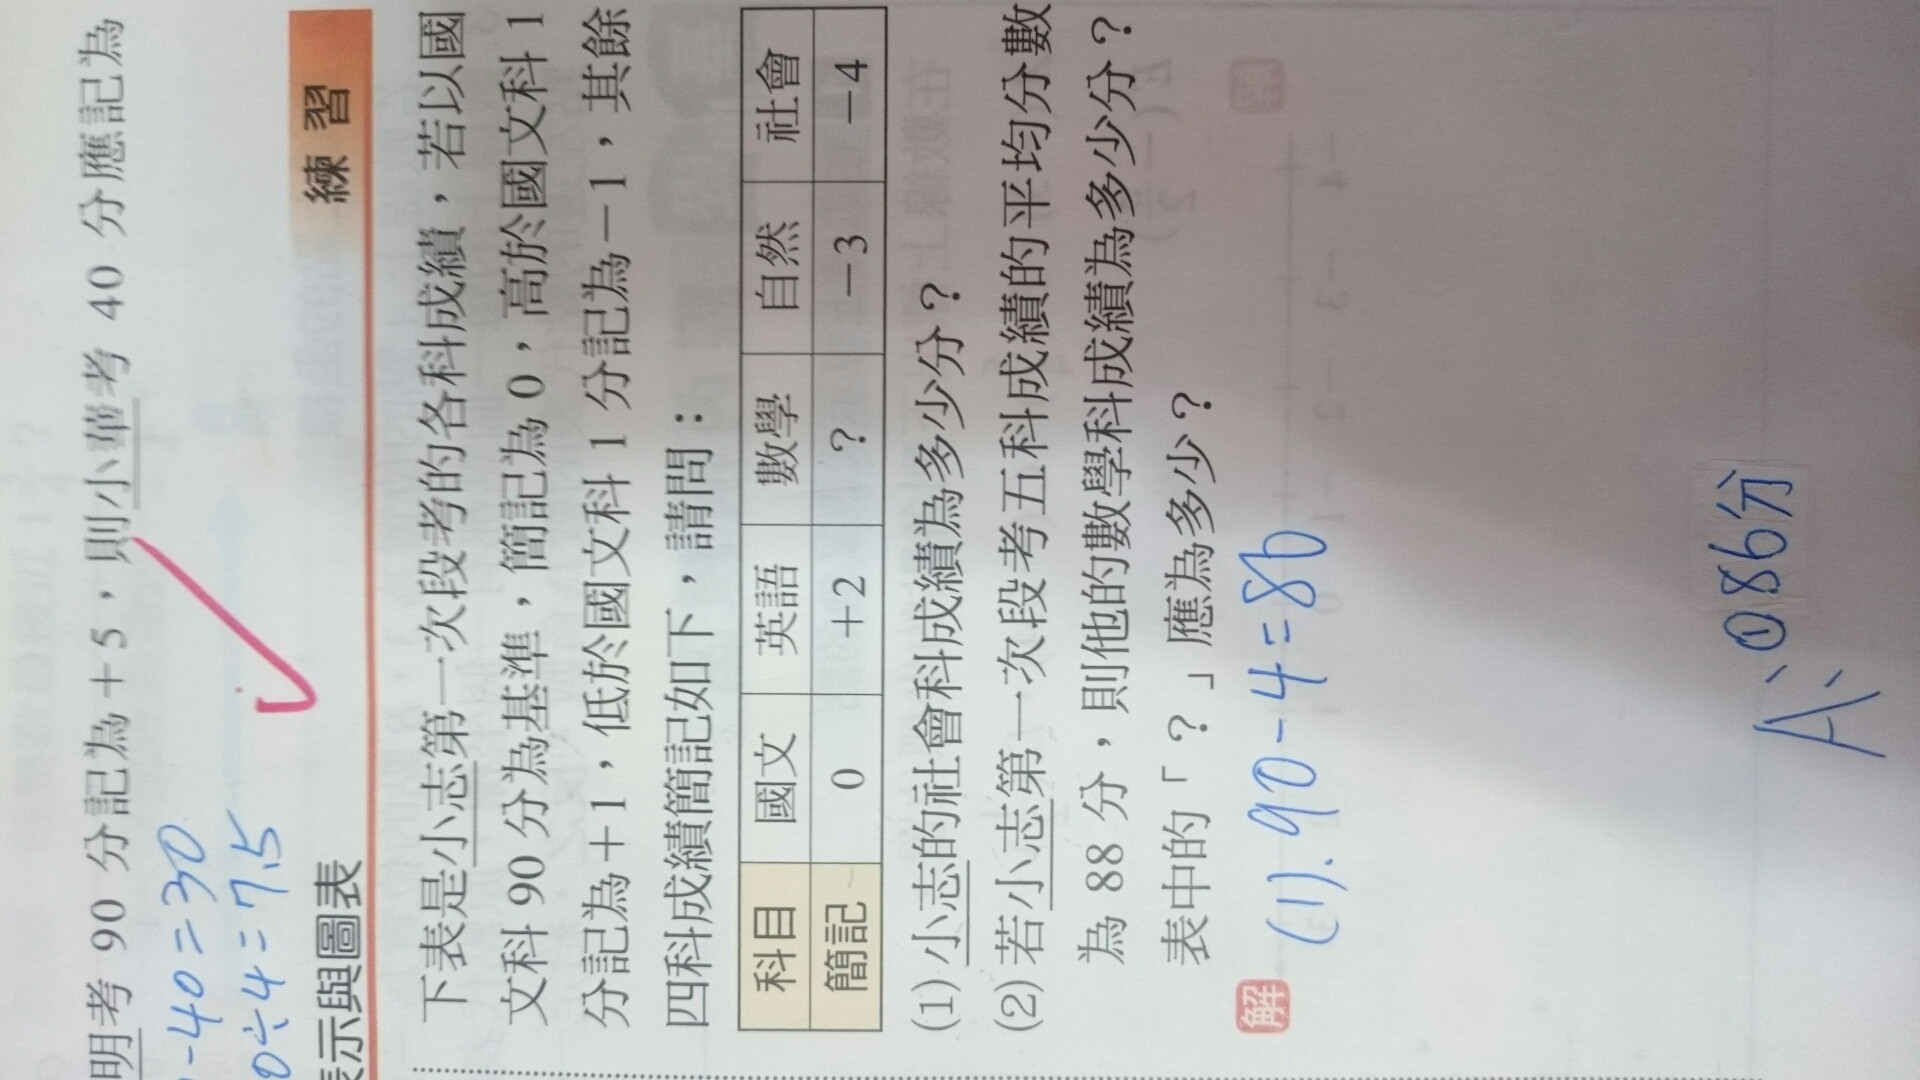 明考 90 分記為+5，則小華考 40 分應記為
-40=30
0÷4=7.5
表示與圖表
練習
下表是小志第一次段考的各科成績，若以國
文科 90 分為基準，簡記為 0，高於國文科 1
分記為+1，低於國文科 1 分記為-1，其餘
四科成績簡記如下，請問：
科目 國文 英語 數學 自然 社會
簡記 0 +2 ? -3 -4
(1) 小志的社會科成績為多少分？
(2) 若小志第一次段考五科成績的平均分數
為 88 分，則他的數學科成績為多少分？
表中的「？」應為多少？
解
(1). 90-4=86
A:①86分